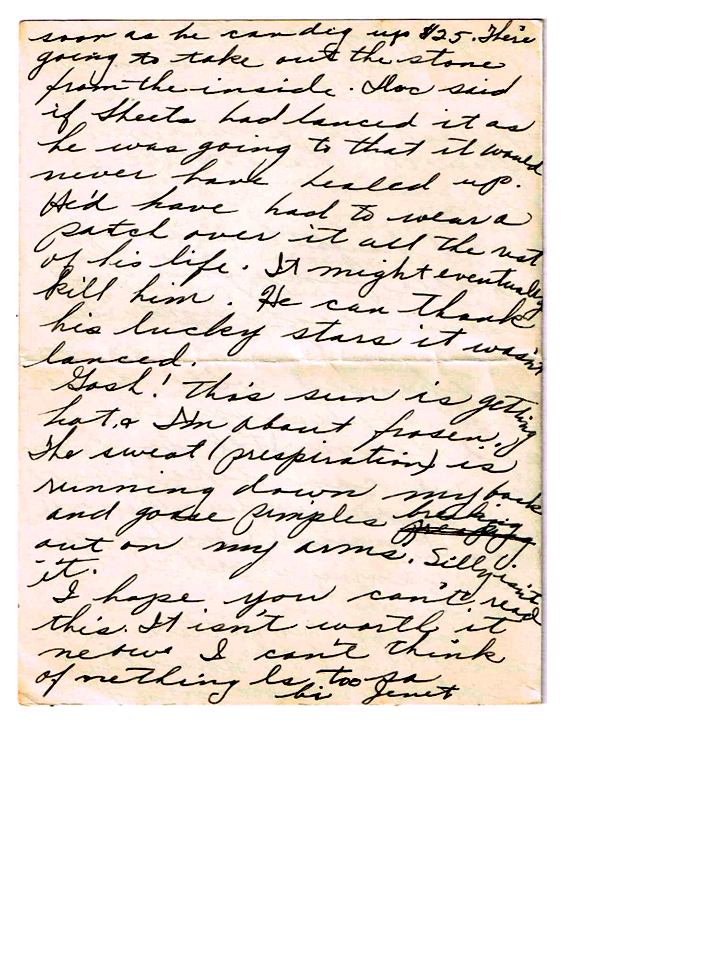 soon as he can dig up $25. There
going to take out the stone
from the inside. Doc said
if Sheets had lanced it as
he was going to that it would
never have healed up.
He'd have had to wear a
patch over it all the rest
of his life. It might eventually
kill him. He can thank
his lucky stars it wasn't
lanced.
Gosh! this sun is getting
hot & I'm about frosen.
The sweat (prespiration) is
running down my back
and goose pimples breaking
out on my arms. Silly isn't
it.
I hope you can't read
this. It isn't worth it
I can't think
of nething ls too sa
bi Jenet